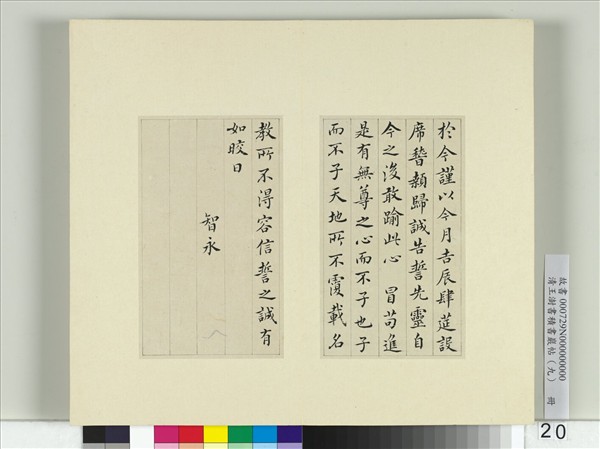 於今謹以今月吉辰肆莚設
席稽顙歸誠告誓先靈自
今之後敢踰此心冒苟進
是有無尊之心而不子也子
而不子天地所不覆載名
教所不得容信誓之誠有
如皎日
智永
故書 000729N000000000
清王澍書積書巖帖（九） 冊
20